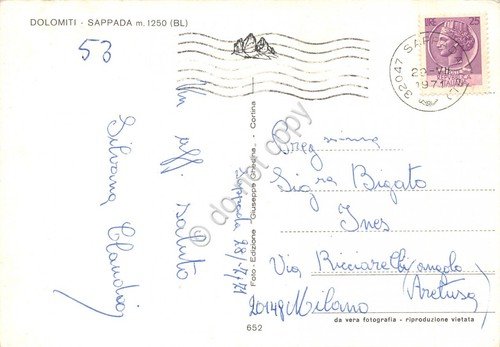 DOLOMITI - SAPPADA m. 1250 (BL)
53
Un aff. saluto
Silvana Claudio
Sappada 28/-7-/71
Foto - Edizione Giuseppe Ghedina - Cortina
32047 SAPPADA
28-VII
1971
25
Preg. signora
Sig.ra Bigato
Ines
Via Ricciarelli (angolo
(Aretusa)
20148 Milano
da vera fotografia - riproduzione vietata
652
do not copy